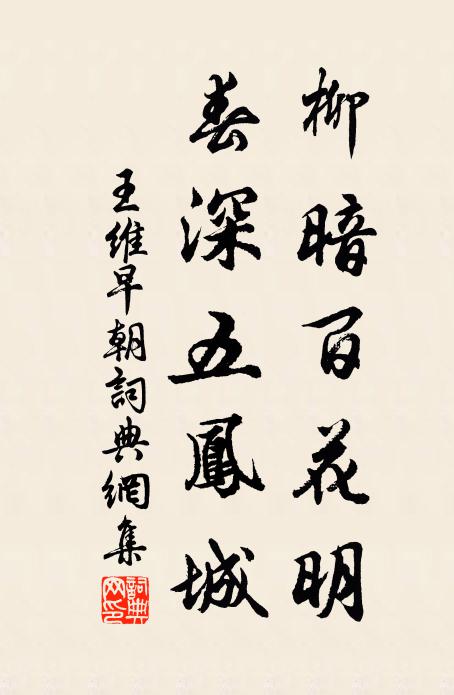 柳暗百花明
春深五鳳城
王維早朝詞典網集
詞典网印